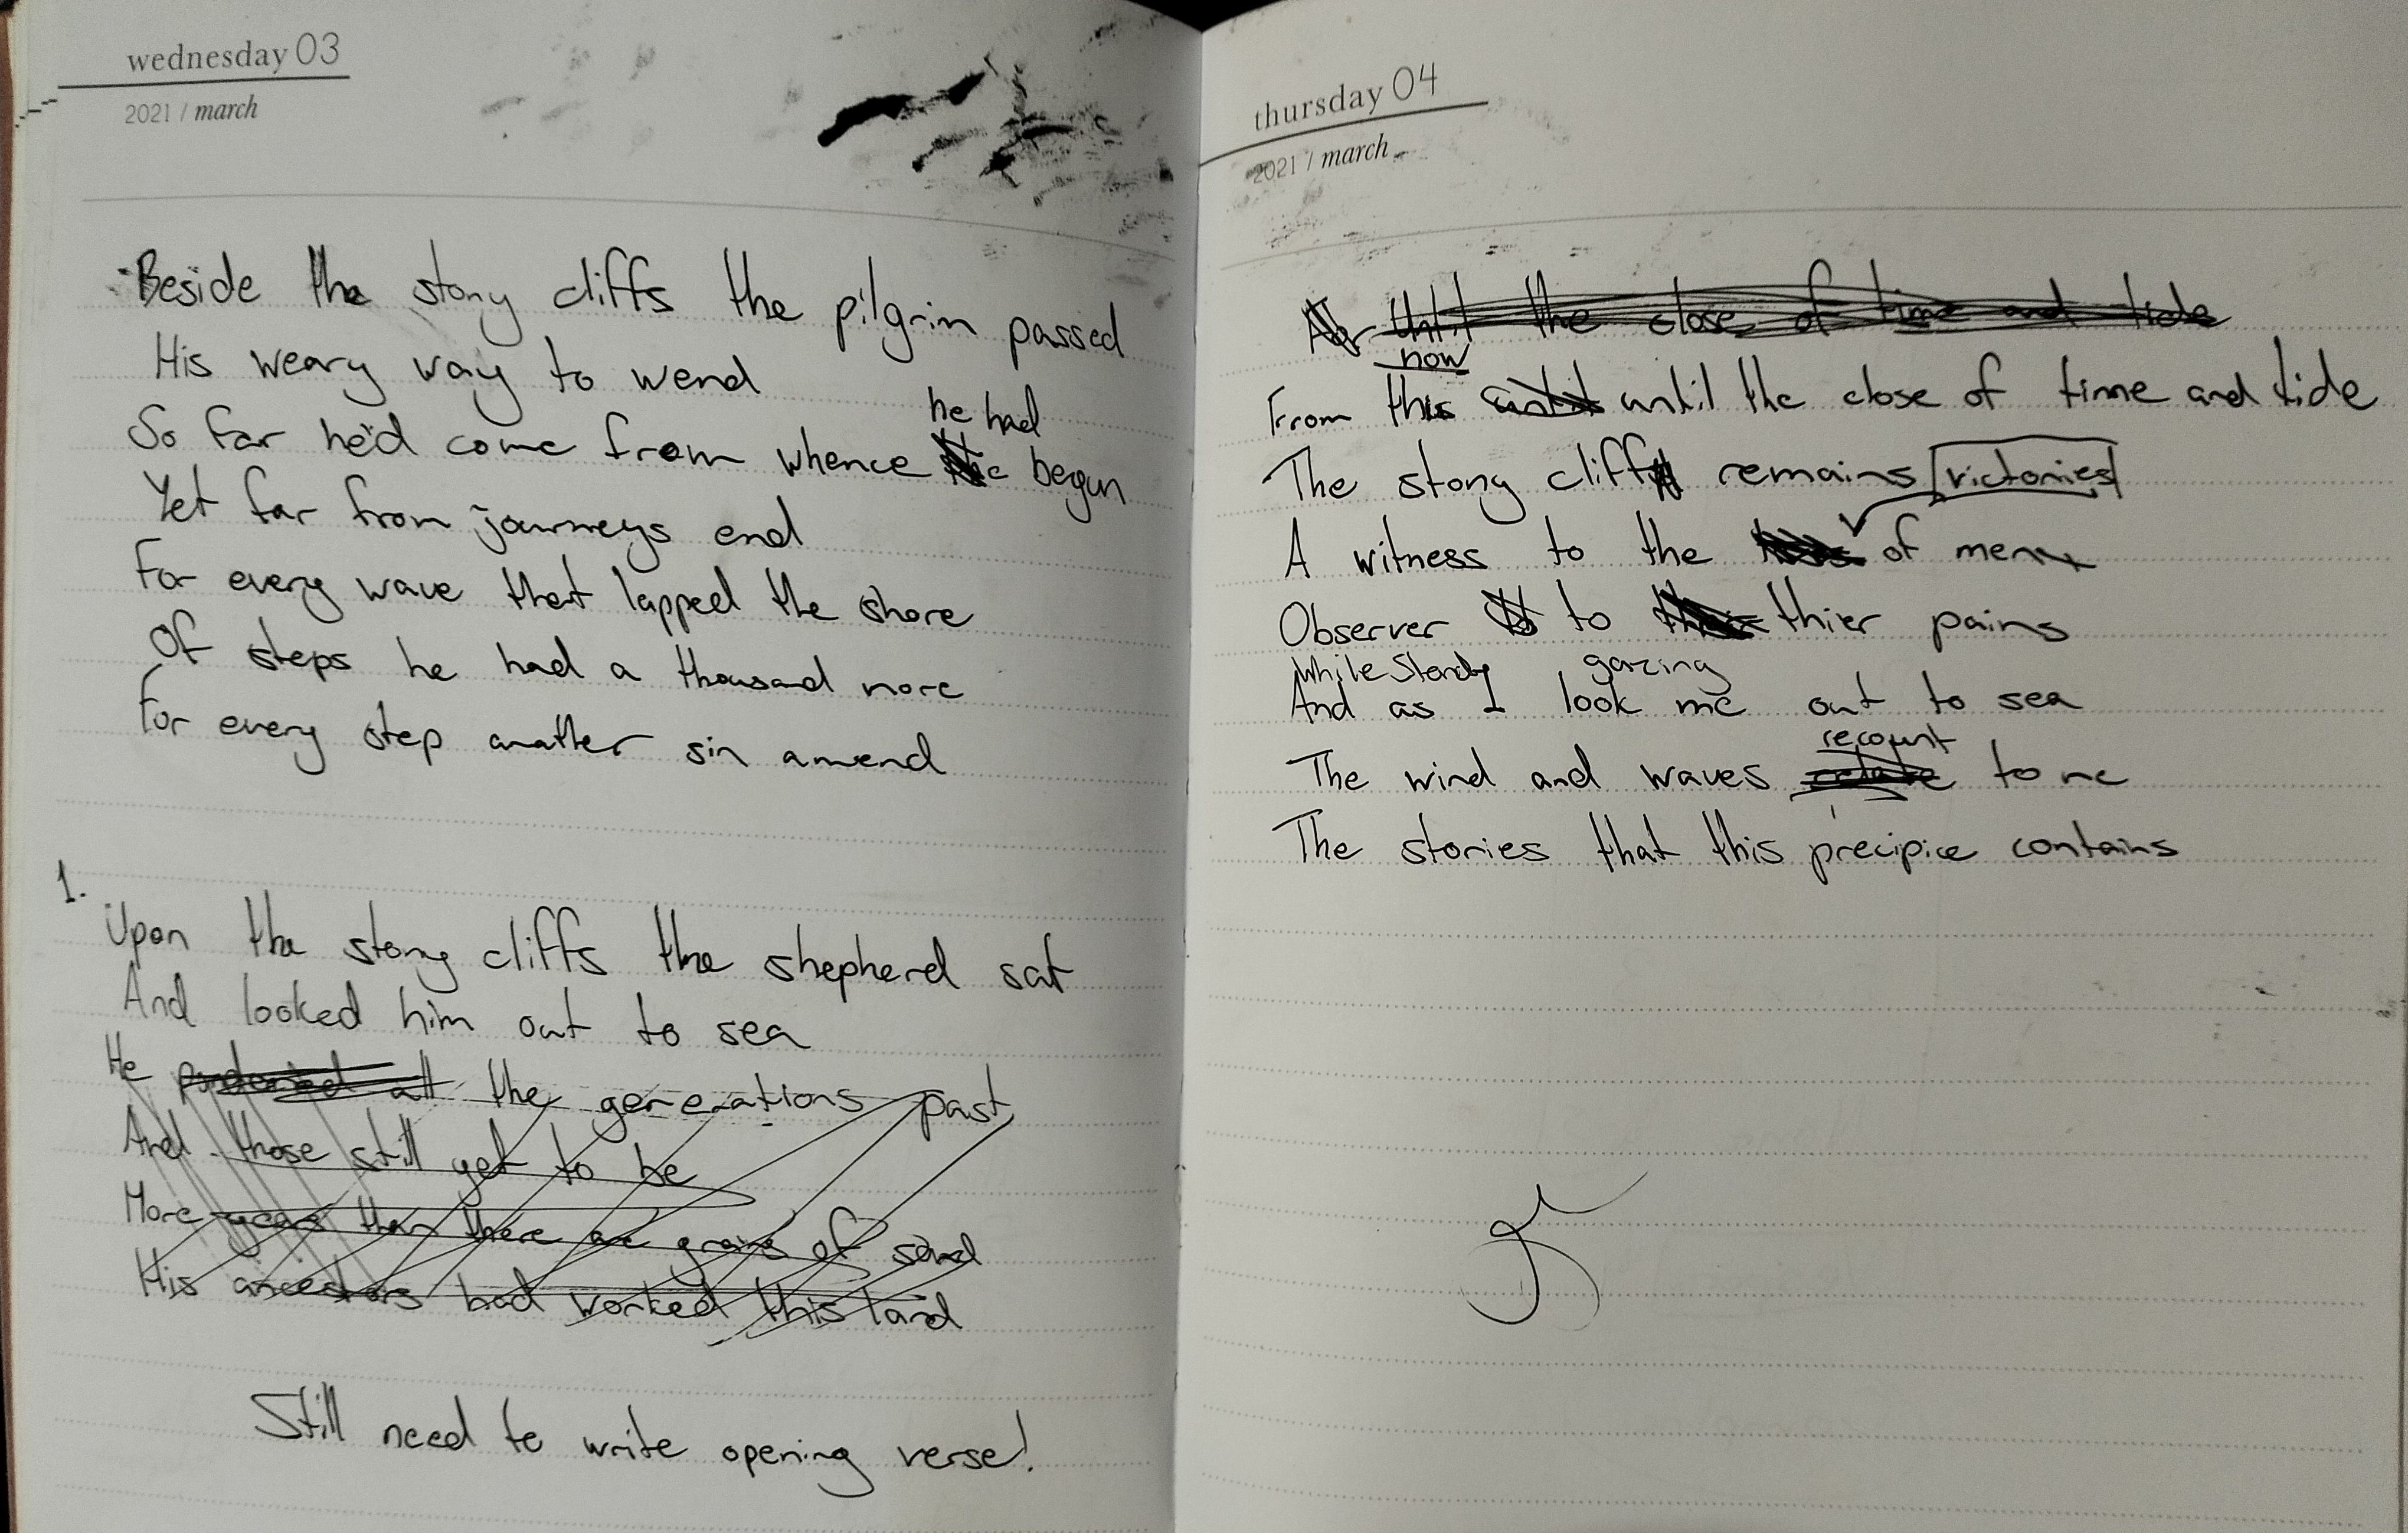 wednesday 03
2021 / march
Beside the stony cliffs the pilgrim passed
His weary way to wend
he had
So far he'd come from whence begun
Yet far from journeys end
For every wave that lapped the shore
Of steps he had a thousand more
For every step another sin amend
1.
Upon the stony cliffs the shepherd sat
And looked him out to sea
He pondered all the generations past
And those still yet to be
More years than there are grains of sand
His ancestors had worked this land
Still need to write opening verse!
thursday 04
2021 / march
Until the close of time and tide
now
From this until until the close of time and tide
The stony cliff remains victories
A witness to the of men
Observer to thier pains
While Standing gazing
And as I look me out to sea
recount
The wind and waves relate to me
The stories that this precipice contains